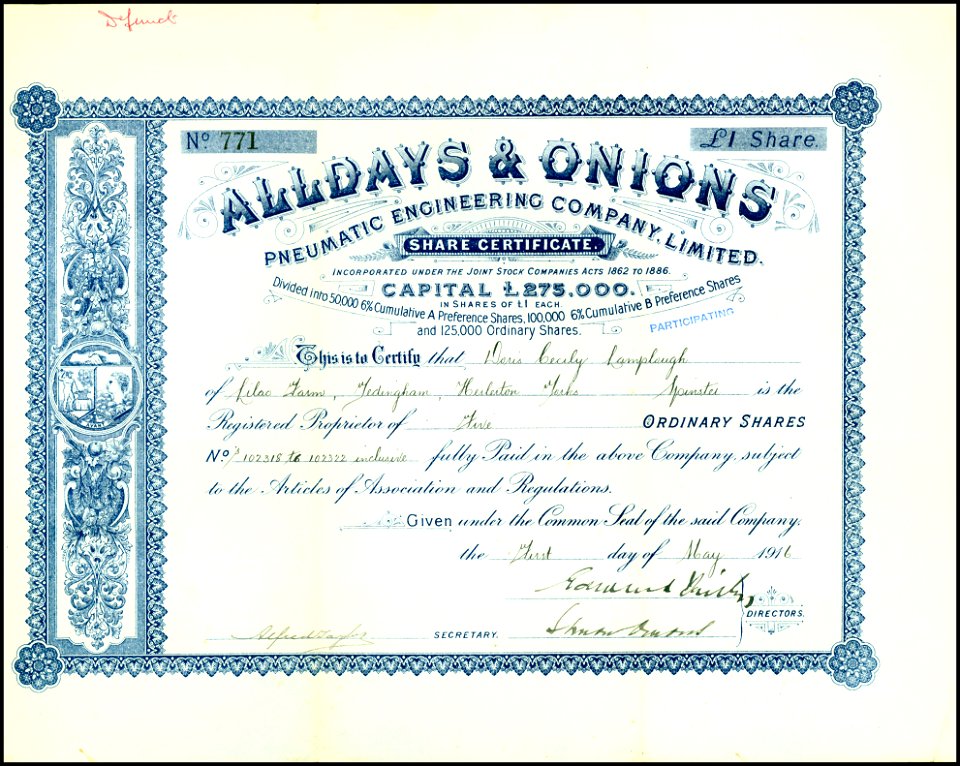 Defunct
Nº 771
£1 Share.
ALLDAYS & ONIONS
PNEUMATIC ENGINEERING COMPANY, LIMITED.
SHARE CERTIFICATE.
INCORPORATED UNDER THE JOINT STOCK COMPANIES ACTS 1862 TO 1886.
CAPITAL £275,000.
IN SHARES OF £1 EACH.
Divided into 50,000 6% Cumulative A Preference Shares, 100,000 6% Cumulative B Preference Shares
PARTICIPATING
and 125,000 Ordinary Shares.
This is to Certify that Doris Cecily Lamplough
of Lilac Farm, Yedingham, Heslerton Yorks Spinster is the
Registered Proprietor of Five ORDINARY SHARES
Nº s 102318 to 102322 inclusive fully Paid in the above Company, subject
to the Articles of Association and Regulations.
Given under the Common Seal of the said Company,
the First day of May 1916
Edmund
DIRECTORS.
Alfred Taylor SECRETARY.